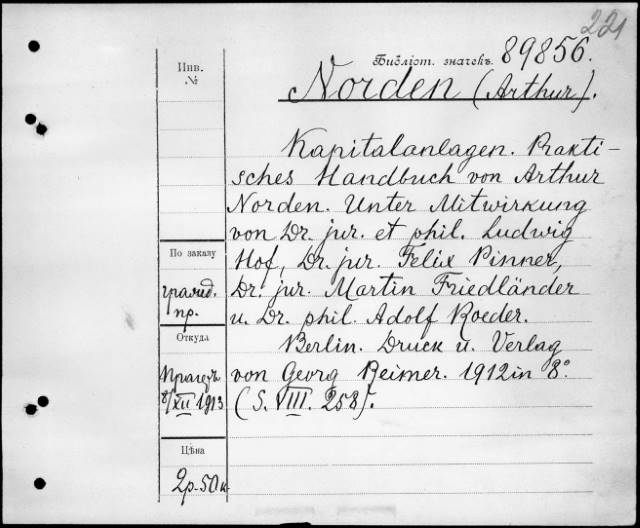 221
Библіот. значекъ 89856.
Инв.
№
Norden (Arthur).
Kapitalanlagen. Prakti-
sches Handbuch von Arthur
Norden. Unter Mitwirkung
von Dr. jur. et phil. Ludwig
Hof, Dr. jur. Felix Pinner,
Dr. jur. Martin Friedländer
u. Dr. phil. Adolf Roeder.
Berlin. Druck u. Verlag
von Georg Reimer. 1912 in 8°
(S. VIII. 258).
По заказу
гражд.
пр.
Откуда
8/XII 1913
Цѣна
2р.50к